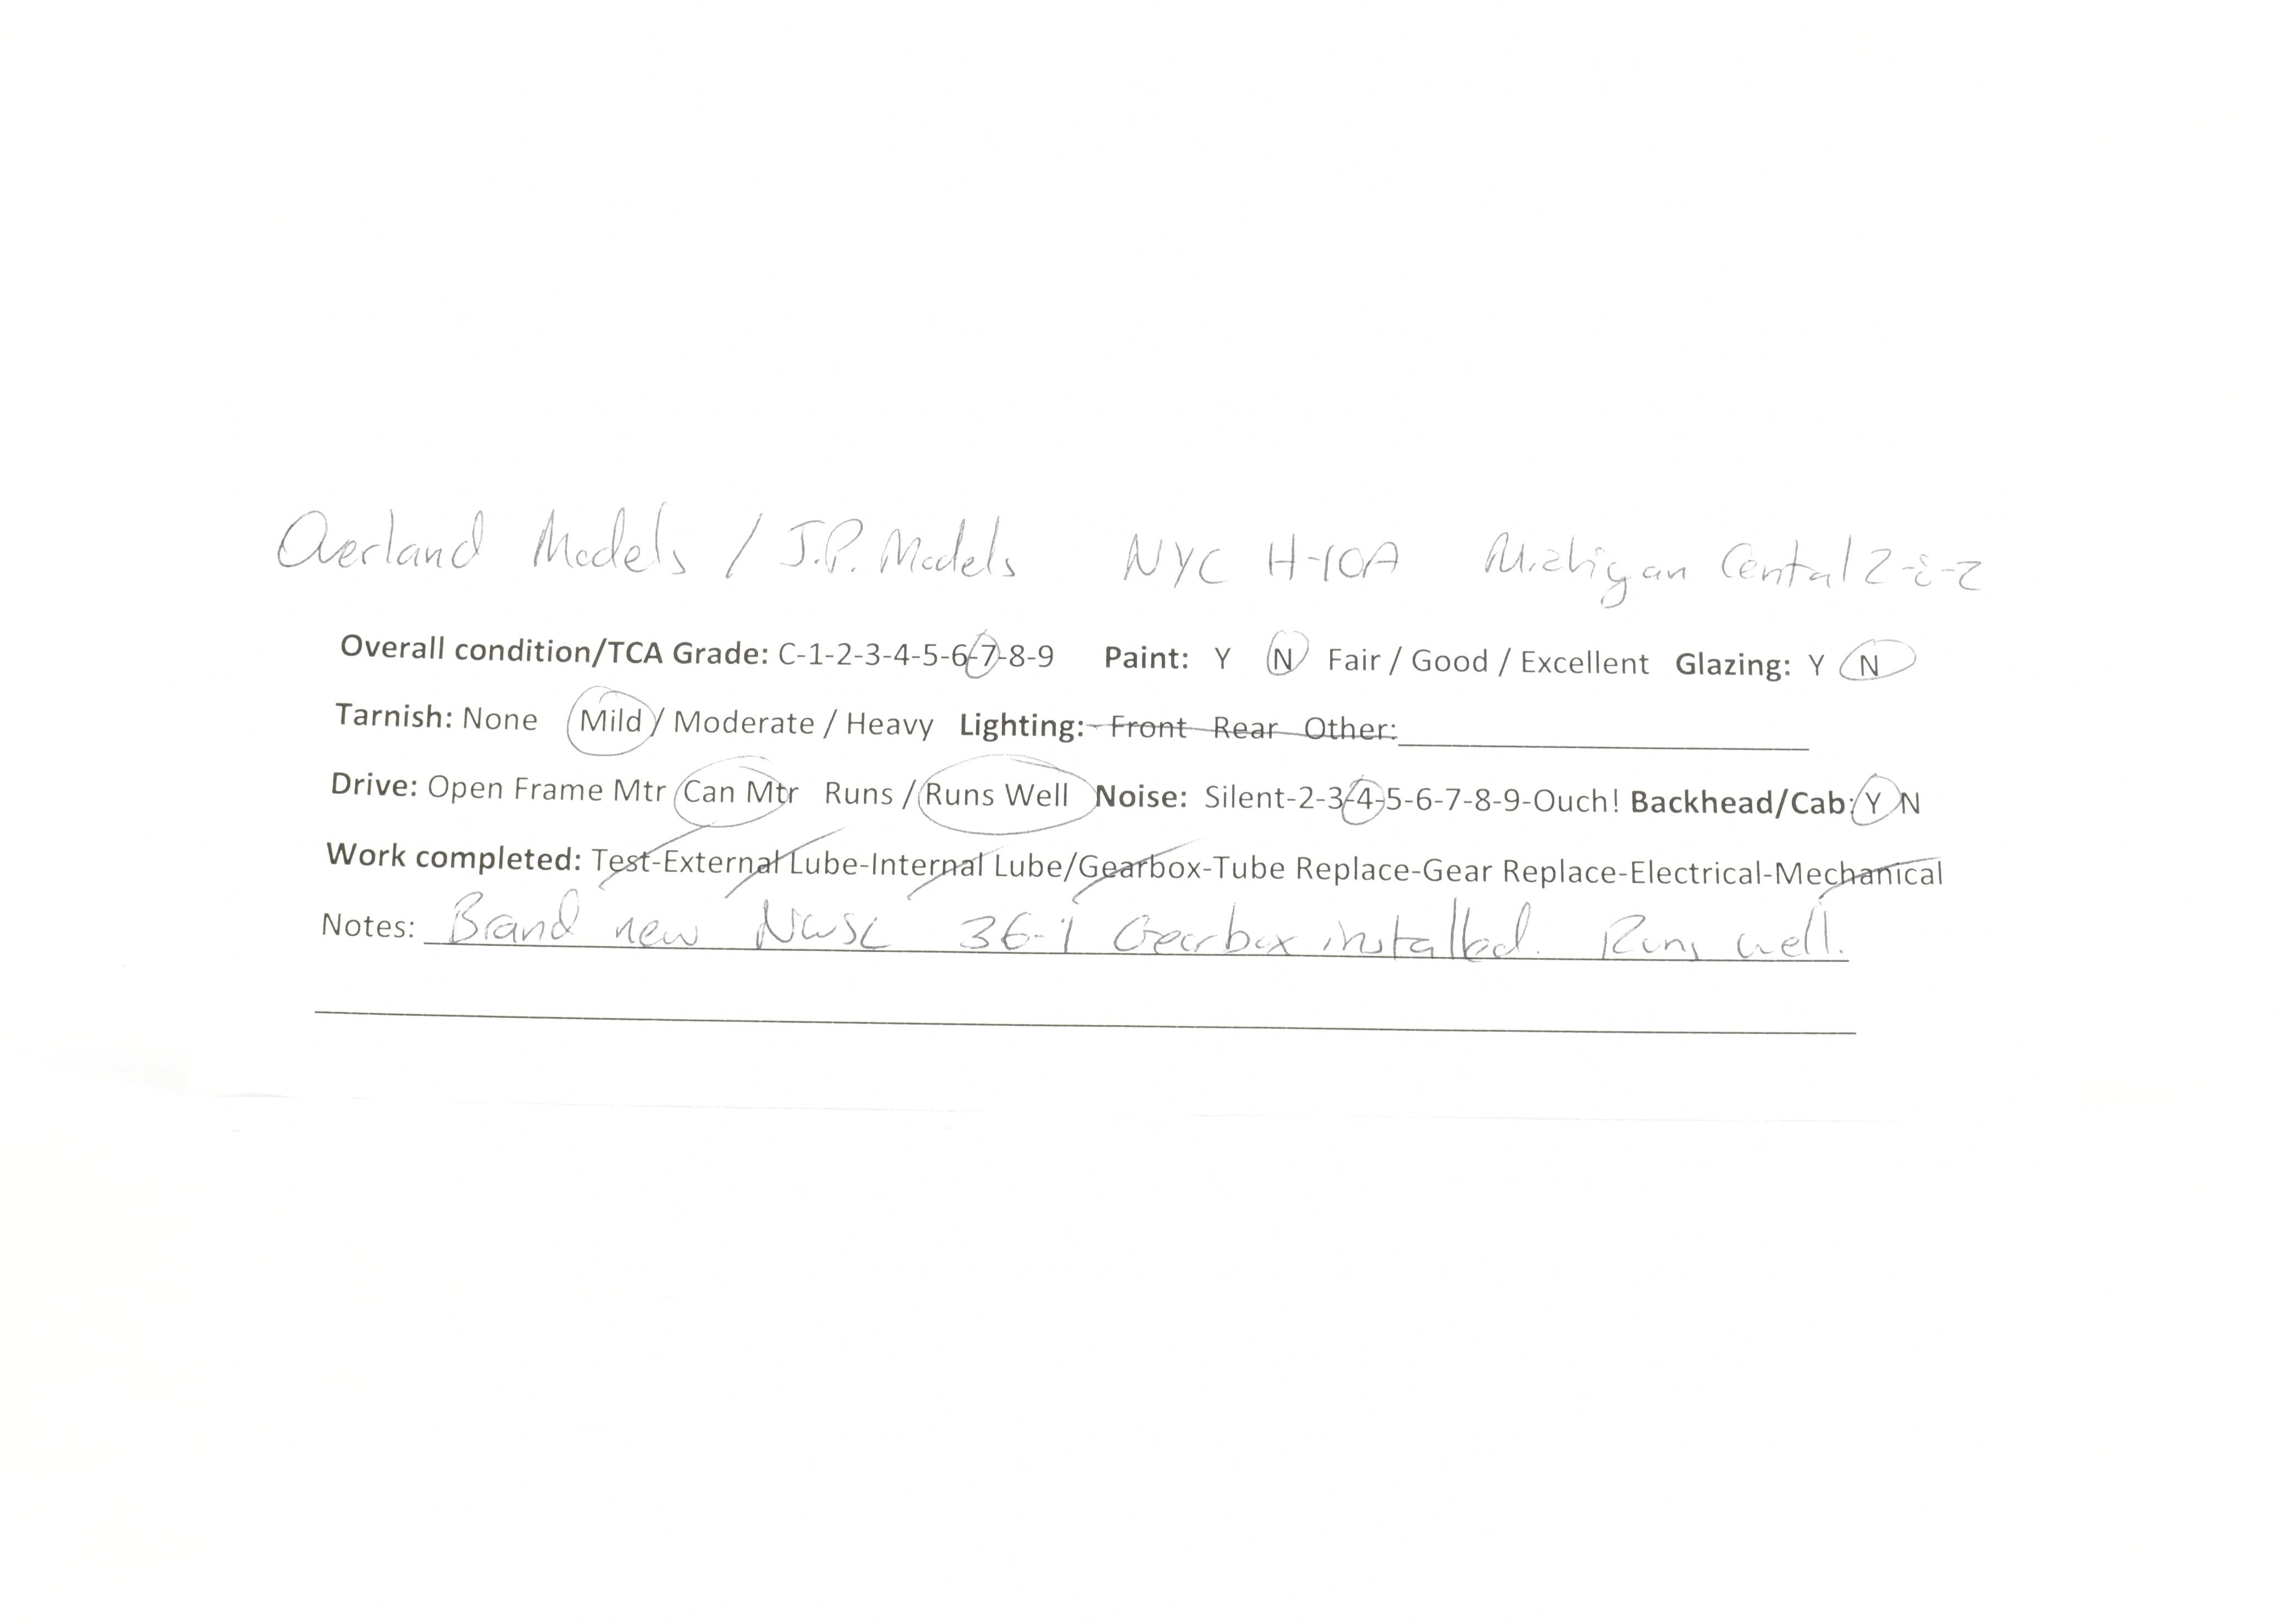 Overland Models / J.P. Models NYC H-10A Michigan Cental 2-8-2
Overall condition/TCA Grade: C-1-2-3-4-5-6-7-8-9 Paint: Y N Fair / Good / Excellent Glazing: Y N
Tarnish: None Mild / Moderate / Heavy Lighting: Front Rear Other:
Drive: Open Frame Mtr Can Mtr Runs / Runs Well Noise: Silent-2-3-4-5-6-7-8-9-Ouch! Backhead/Cab: Y N
Work completed: Test-External Lube-Internal Lube/Gearbox-Tube Replace-Gear Replace-Electrical-Mechanical
Notes: Brand new NWSL 36-1 Gearbox installed. Runs well.